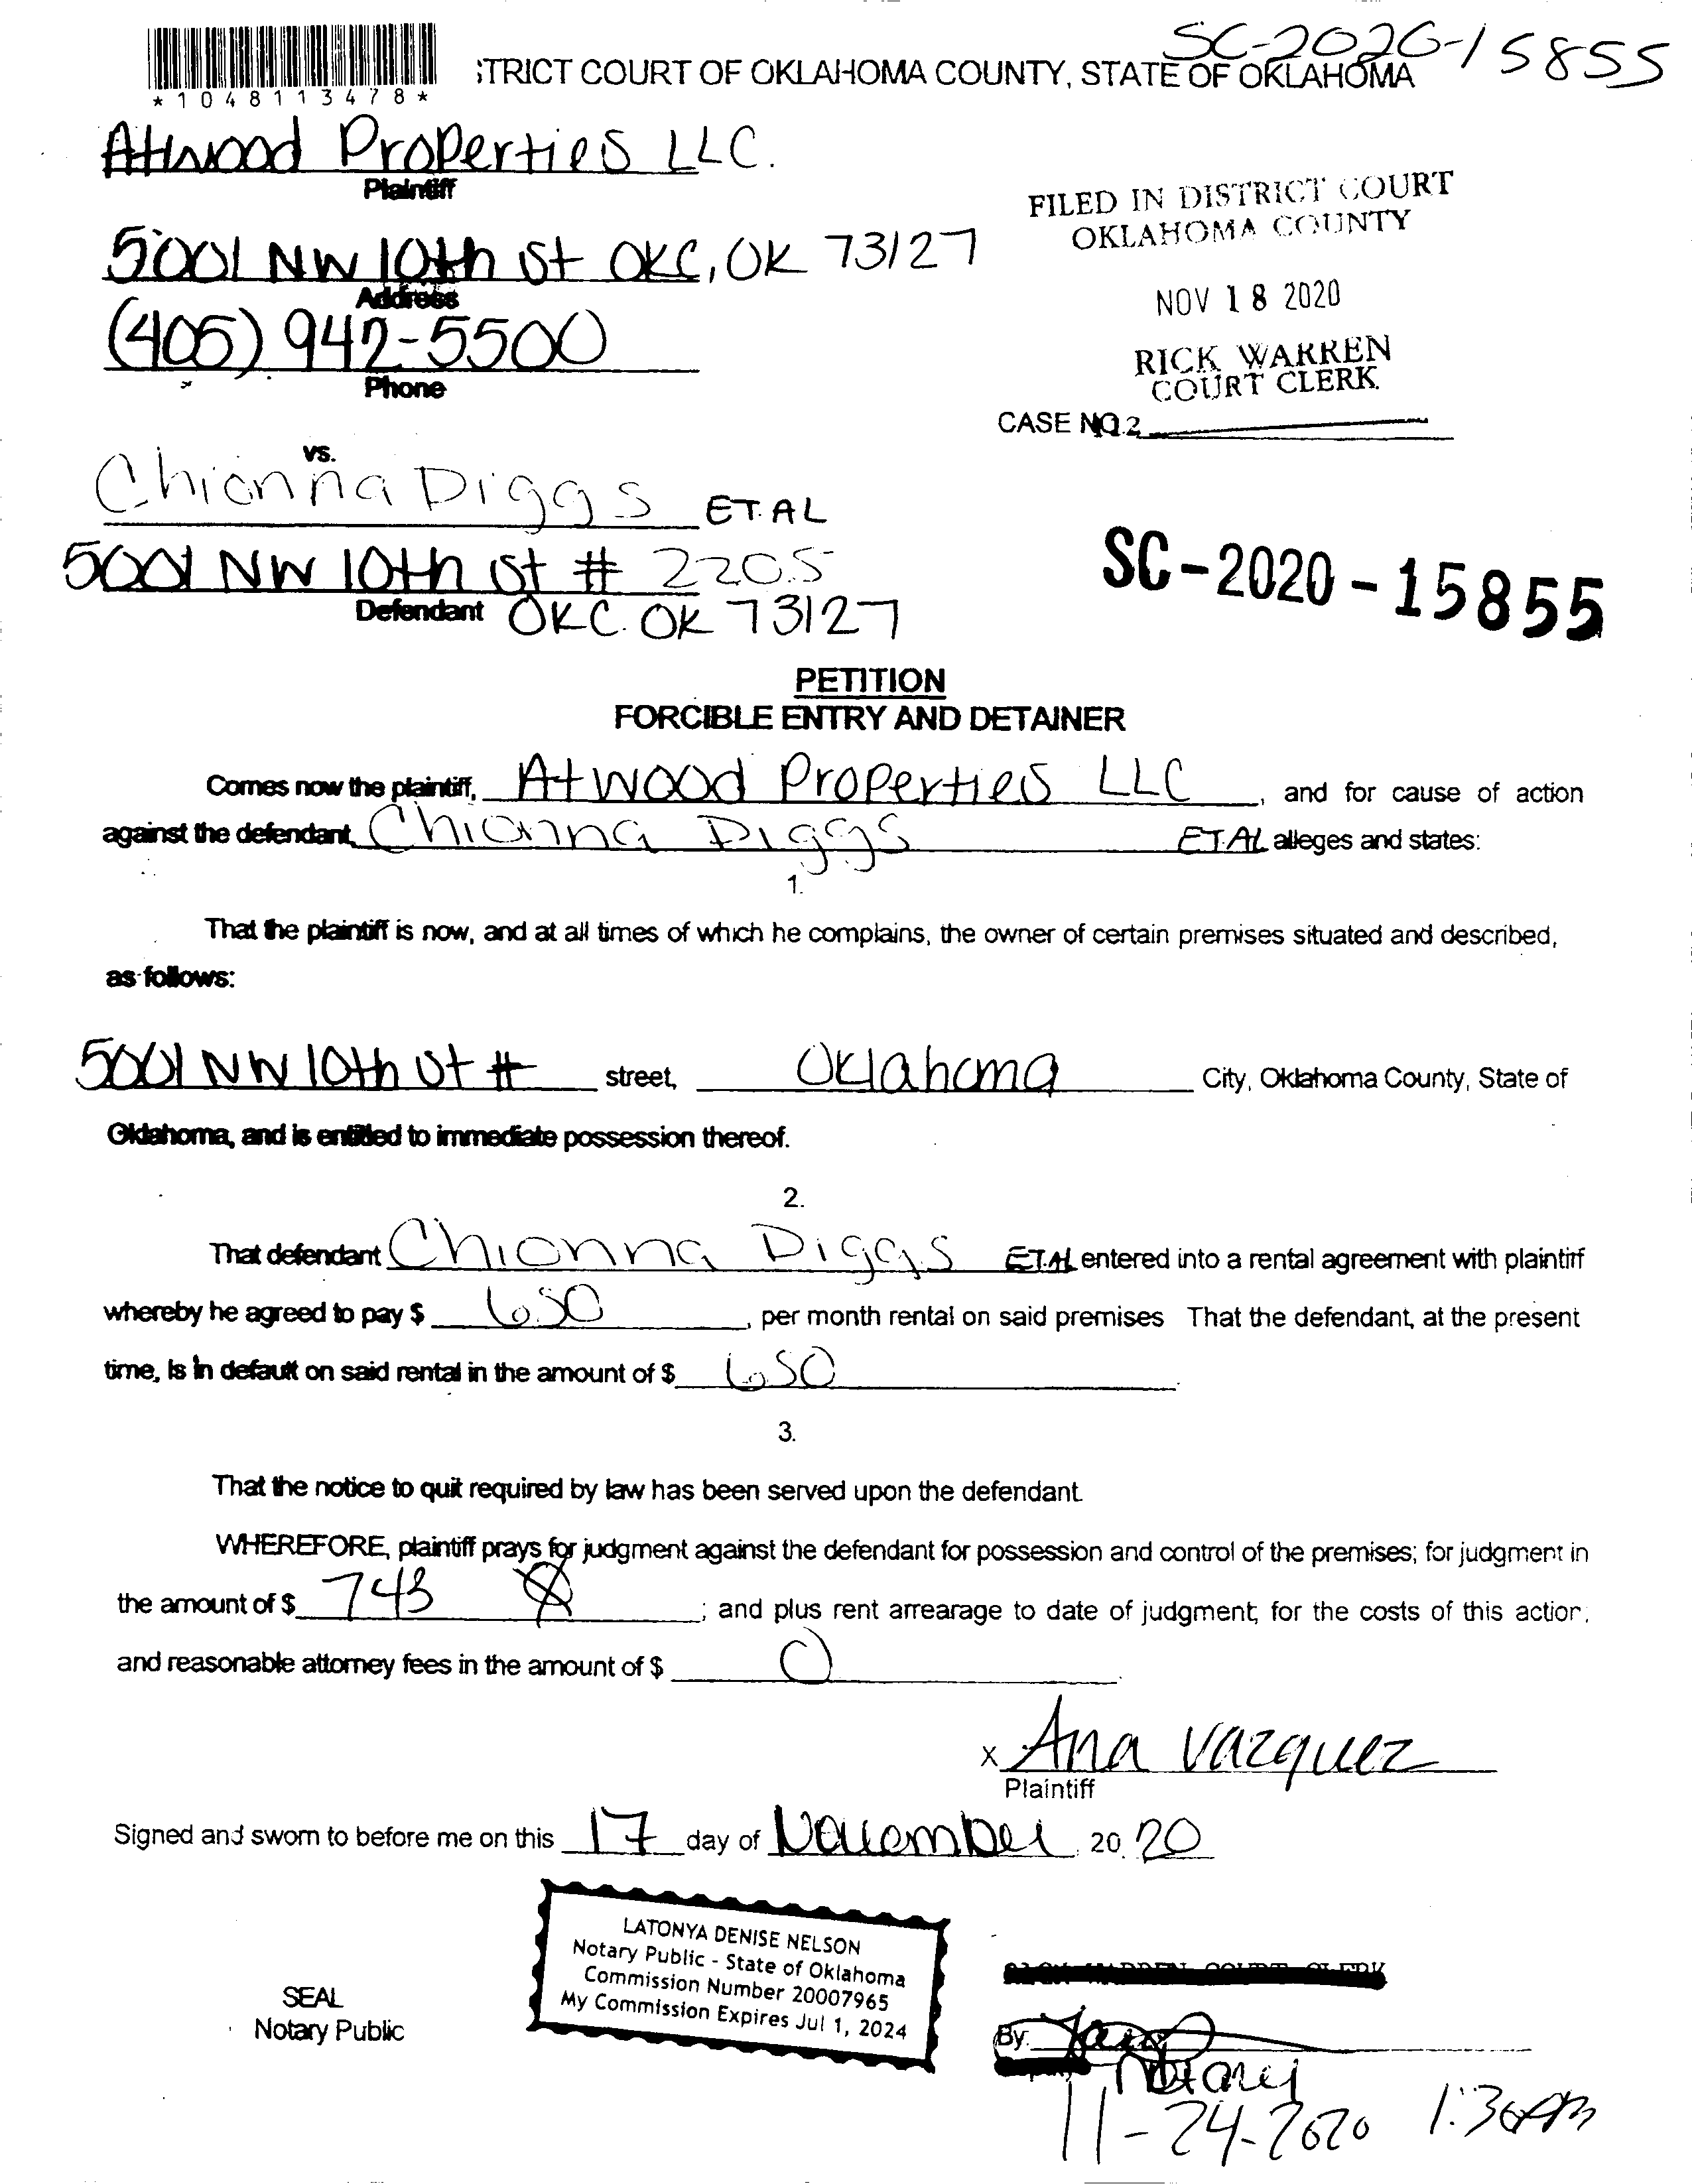 SC-2020-15855
*1048113478*
STRICT COURT OF OKLAHOMA COUNTY, STATE OF OKLAHOMA
Atwood Properties LLC.
Plaintiff
5001 NW 10th St OKC, OK 73127
Address
(405) 942-5500
Phone
FILED IN DISTRICT COURT
OKLAHOMA COUNTY
NOV 18 2020
RICK WARREN
COURT CLERK
CASE NO.
vs.
Chionna Diggs ET.AL
5001 NW 10th St # 2205
Defendant OKC. OK 73127
SC-2020-15855
PETITION
FORCIBLE ENTRY AND DETAINER
Comes now the plaintiff, Atwood Properties LLC, and for cause of action
against the defendant, Chionna Diggs ET.AL alleges and states:
1.
That the plaintiff is now, and at all times of which he complains, the owner of certain premises situated and described,
as follows:
5001 NW 10th St # street, Oklahoma City, Oklahoma County, State of
Oklahoma, and is entitled to immediate possession thereof.
2.
That defendant Chionna Diggs ET.AL entered into a rental agreement with plaintiff
whereby he agreed to pay $ 650, per month rental on said premises That the defendant, at the present
time, Is in default on said rental in the amount of $ 650
3.
That the notice to quit required by law has been served upon the defendant.
WHEREFORE, plaintiff prays for judgment against the defendant for possession and control of the premises; for judgment in
the amount of $ 743; and plus rent arrearage to date of judgment; for the costs of this action;
and reasonable attorney fees in the amount of $ 0
x Ana Vazquez
Plaintiff
Signed and sworn to before me on this 17 day of November, 20 20
LATONYA DENISE NELSON
Notary Public - State of Oklahoma
Commission Number 20007965
My Commission Expires Jul 1, 2024
SEAL
Notary Public
By:
Notary
11-24-2020 1:30 PM